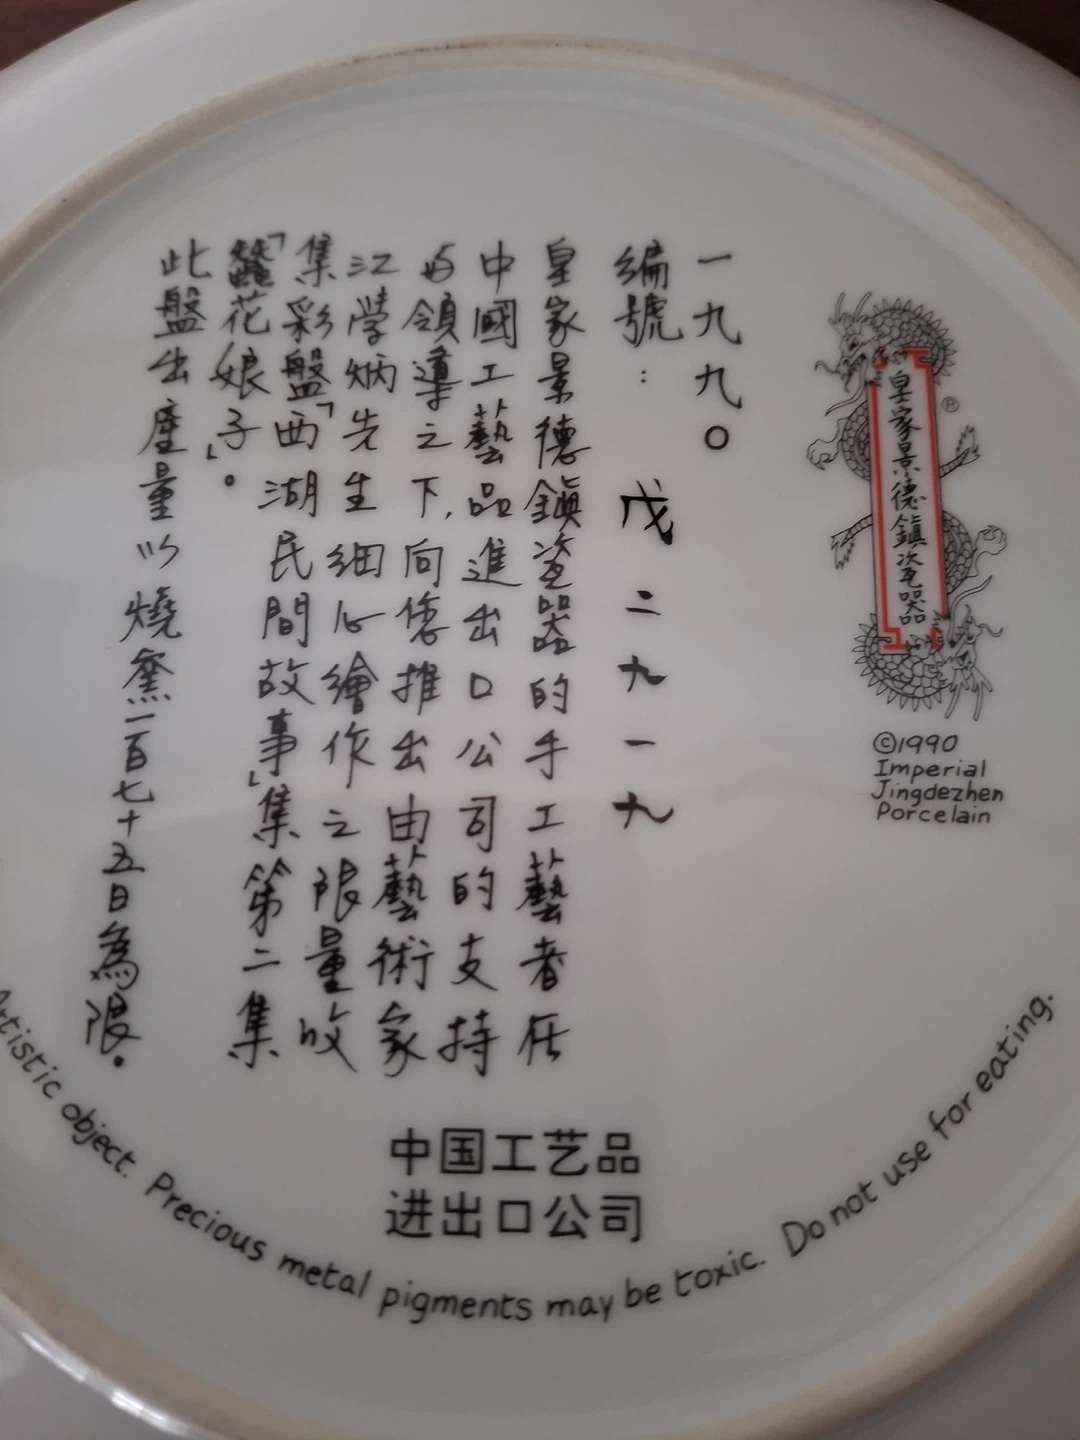 皇家景德鎮瓷器
®
©1990
Imperial
Jingdezhen
Porcelain
一九九〇
編號：戊二九一九
皇家景德鎮瓷器的手工藝者在
中國工藝品進出口公司的支持
与領導之下,向您推出由藝術家
江學炳先生細心繪作之限量收
集彩盤「西湖民間故事」集第二集
「蠶花娘子」。
此盤出產量以燒窯一百七十五日為限。
中国工艺品
进出口公司
Artistic object. Precious metal pigments may be toxic. Do not use for eating.